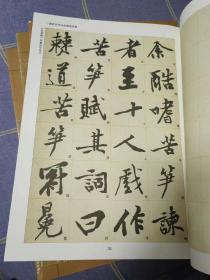 余酷嗜苦笋諫
者至十人戲作
苦笋賦其詞曰
僰道苦笋冠冕